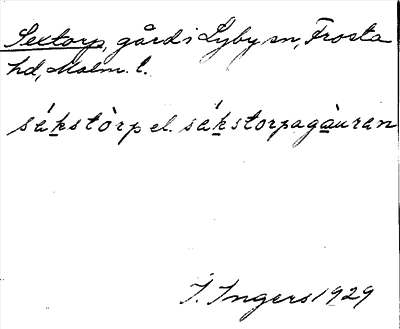 Sextorp, gård i Lyby sn, Frosta
hd, Malm. l.
sákstòrp el. sákstorpagàuran
I. Ingers 1929